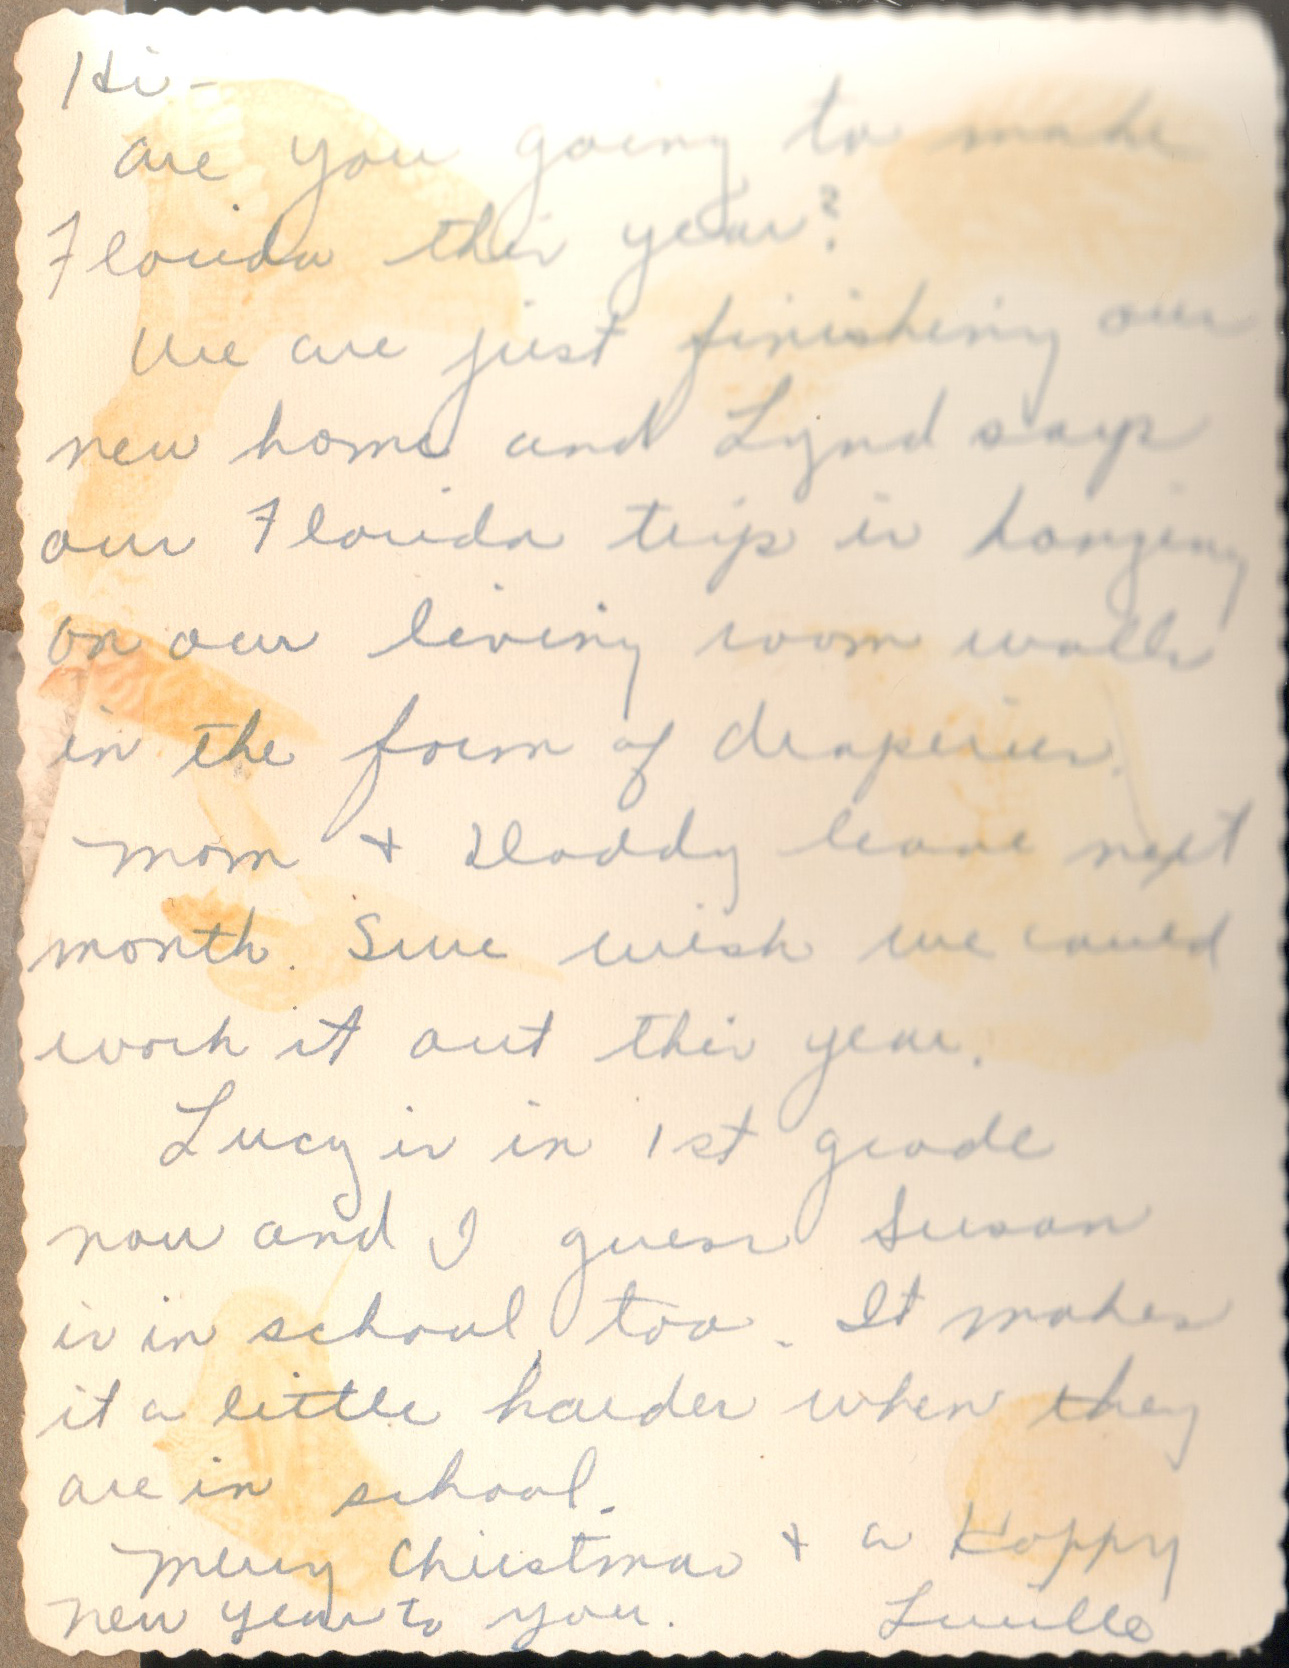 Hi -
are you going to make
Florida this year?
We are just finishing our
new home and Lynd says
our Florida trip is hanging
on our living room walls
in the form of draperies.
Mom + Daddy leave next
month. Sure wish we could
work it out this year.
Lucy is in 1st grade
now and I guess Susan
is in school, too. It makes
it a little harder when they
are in school.
Merry Christmas + a Happy
New Year to you. Lucille